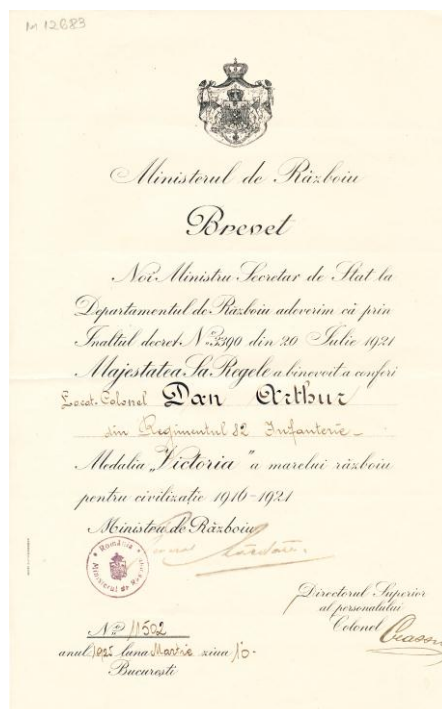 M 12683
Ministerul de Războiu
Brevet
Noi Ministru Secretar de Stat la
Departamentul de Războiu adeverim că prin
Inaltul decret No 3390 din 20 Iulie 1921
Majestatea Sa Regele a binevoit a conferi
Locot. Colonel Dan Arthur
din Regimentul 82 Infanterie
Medalia „Victoria" a marelui războiu
pentru civilizaţie 1916-1921
Ministru de Războiu
România
Ministerul de
Directorul Superior
al personalului
Colonel
No 11502
anul 1925 luna Martie ziua 10-
Bucureşti